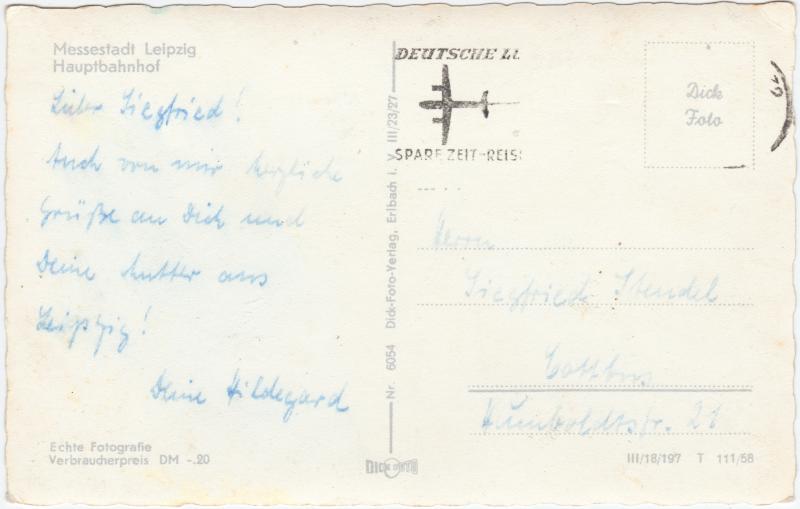 Messestadt Leipzig
Hauptbahnhof
Lieber Siegfried!
Auch von mir herzliche
Grüße an Dich und
Deine Mutter aus
Leipzig!
Deine Hildegard
Echte Fotografie
Verbraucherpreis DM -.20
Nr. 6054 Dick-Foto-Verlag, Erlbach i. V. III/23/27
DICK FOTO
DEUTSCHE LU
SPARE ZEIT-REIS
Dick
Foto
Herrn
Siegfried Stendel
Cottbus
Humboldtstr. 21
III/18/197 T 111/58